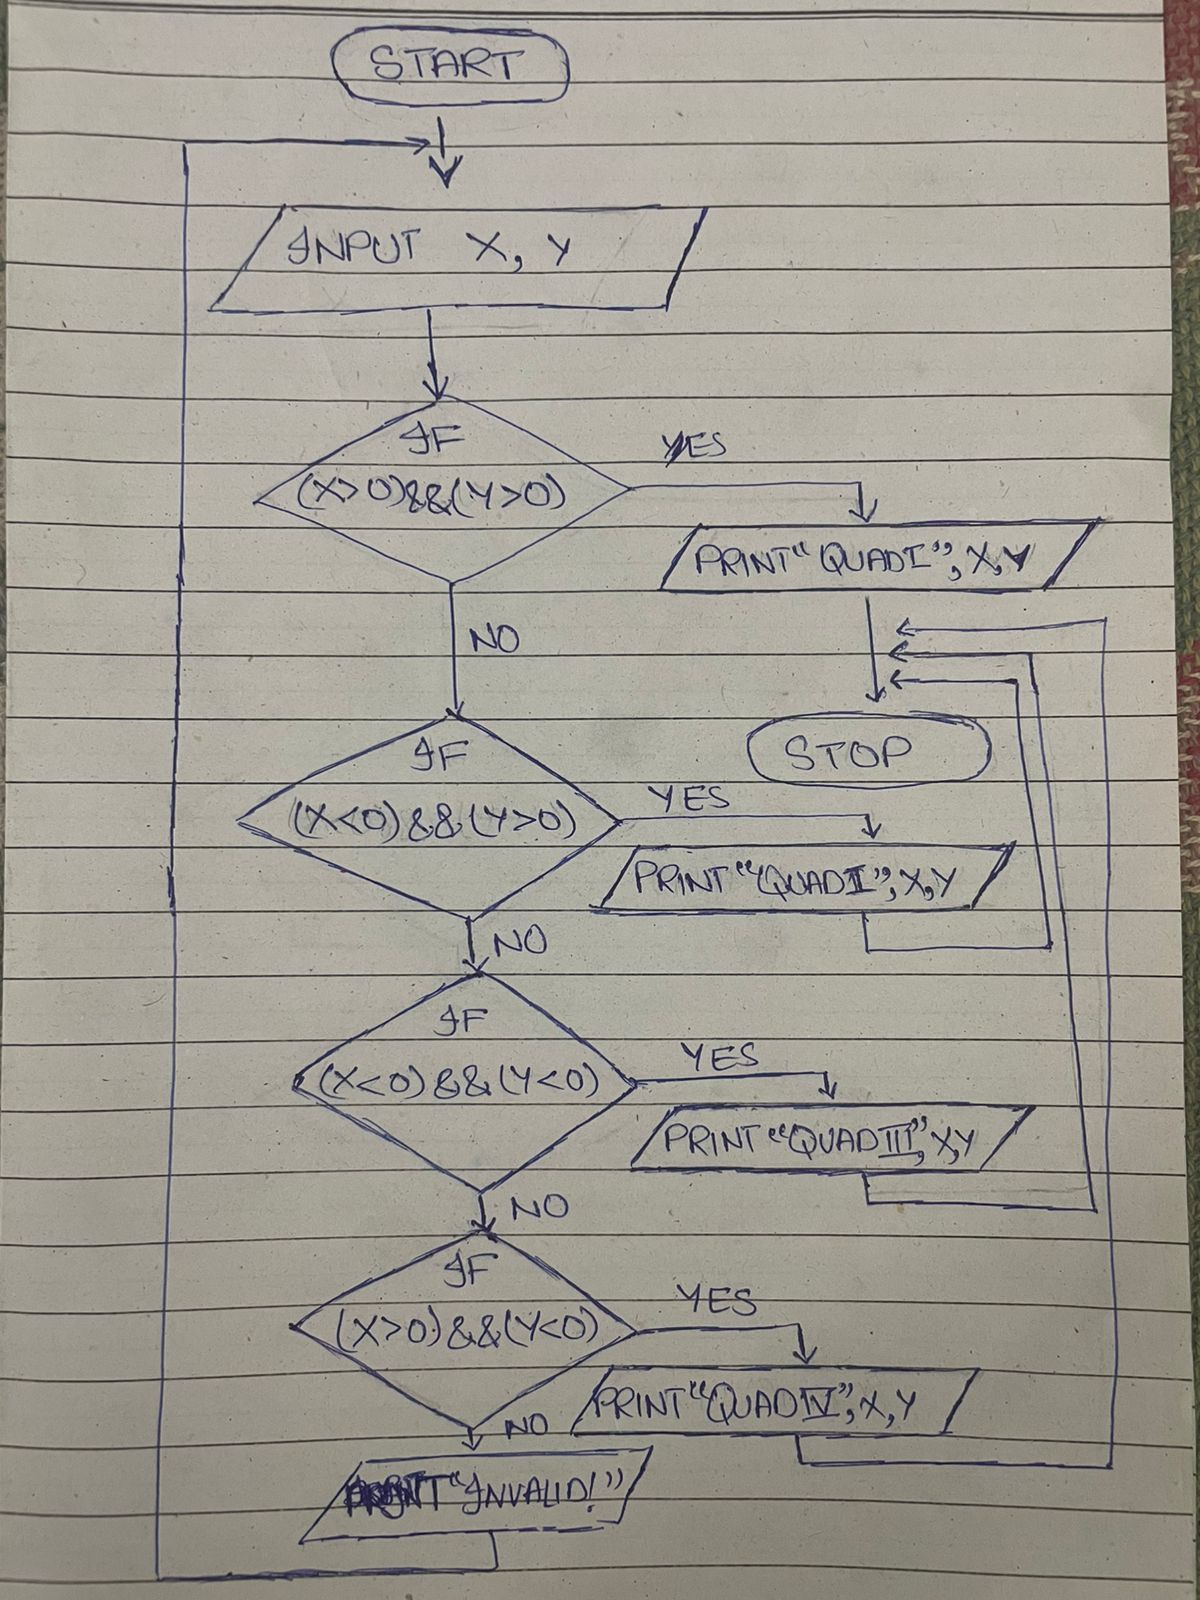 START
INPUT X, Y
IF
(X>0)&&(Y>0)
YES
PRINT "QUAD I", X,Y
NO
STOP
IF
(X<0)&&(Y>0)
YES
PRINT "QUAD II", X,Y
NO
IF
(X<0)&&(Y<0)
YES
PRINT "QUAD III", X,Y
NO
IF
(X>0)&&(Y<0)
YES
PRINT "QUAD IV", X,Y
NO
PRINT "INVALID!"